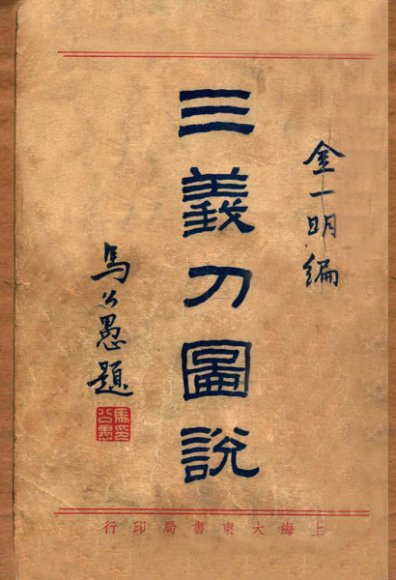 金一明編
三義刀圖說
馬公愚題
馬公愚印
上海大東書局印行